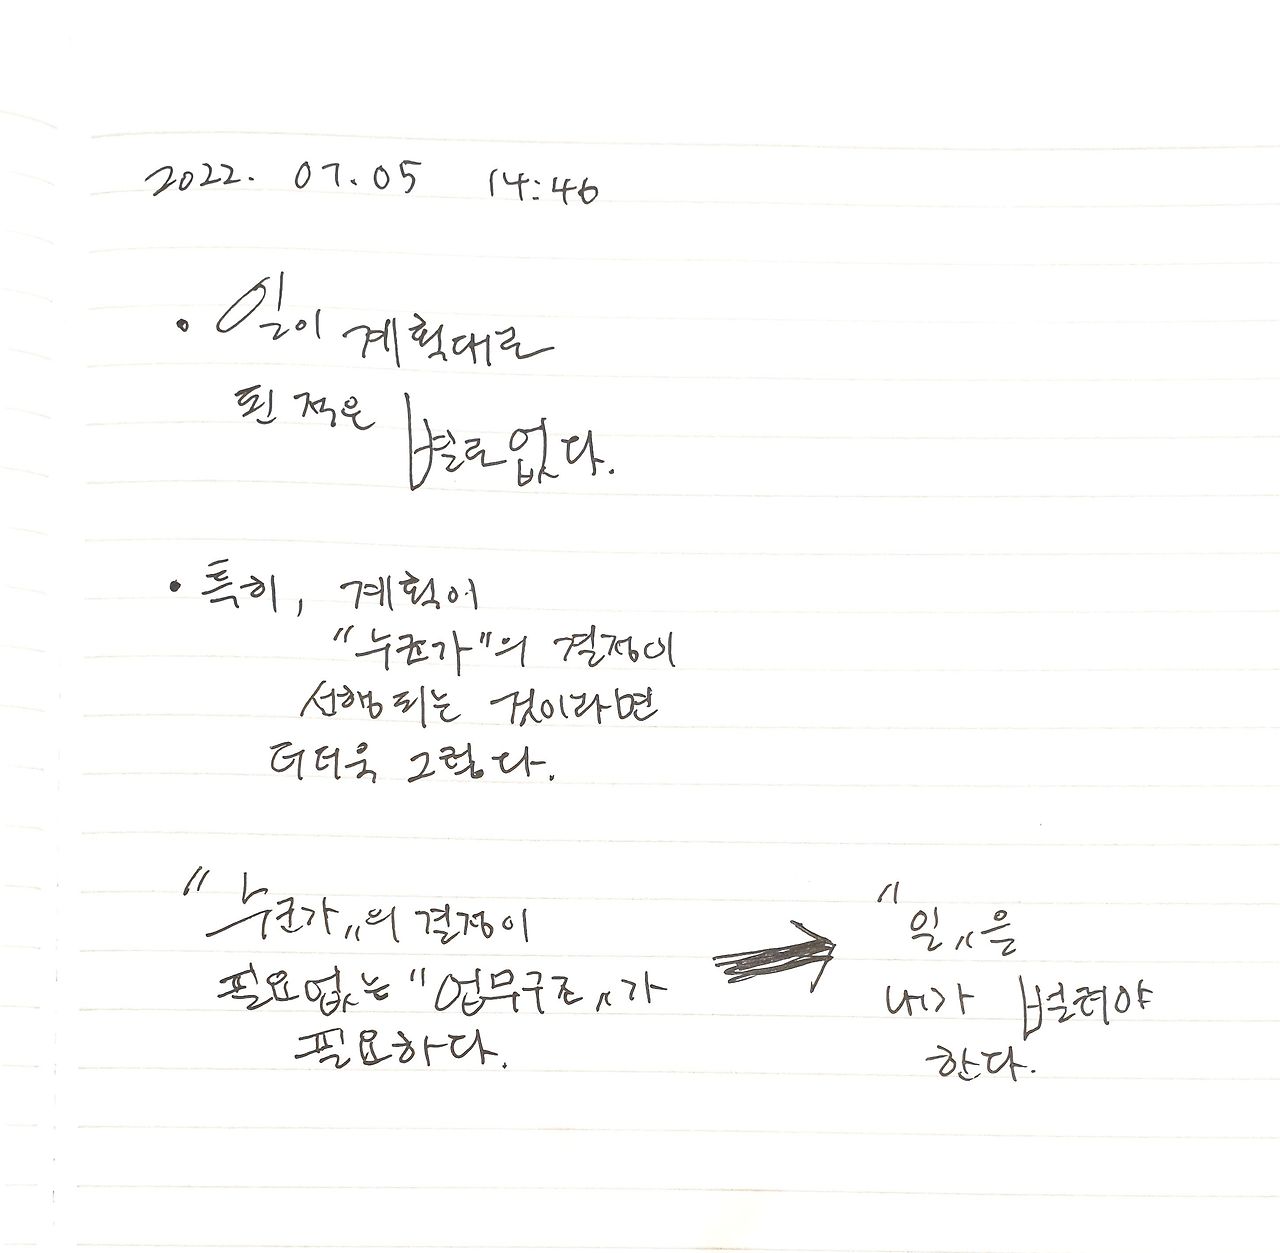 2022. 07.05 14:46
• 일이 계획대로
된 적은 별로 없다.
• 특히, 계획이
"누군가"의 결정이
선행되는 것이라면
더더욱 그렇다.
"누군가"의 결정이
필요없는 "업무구조"가
필요하다.
→
"일"은
내가 벌려야
한다.